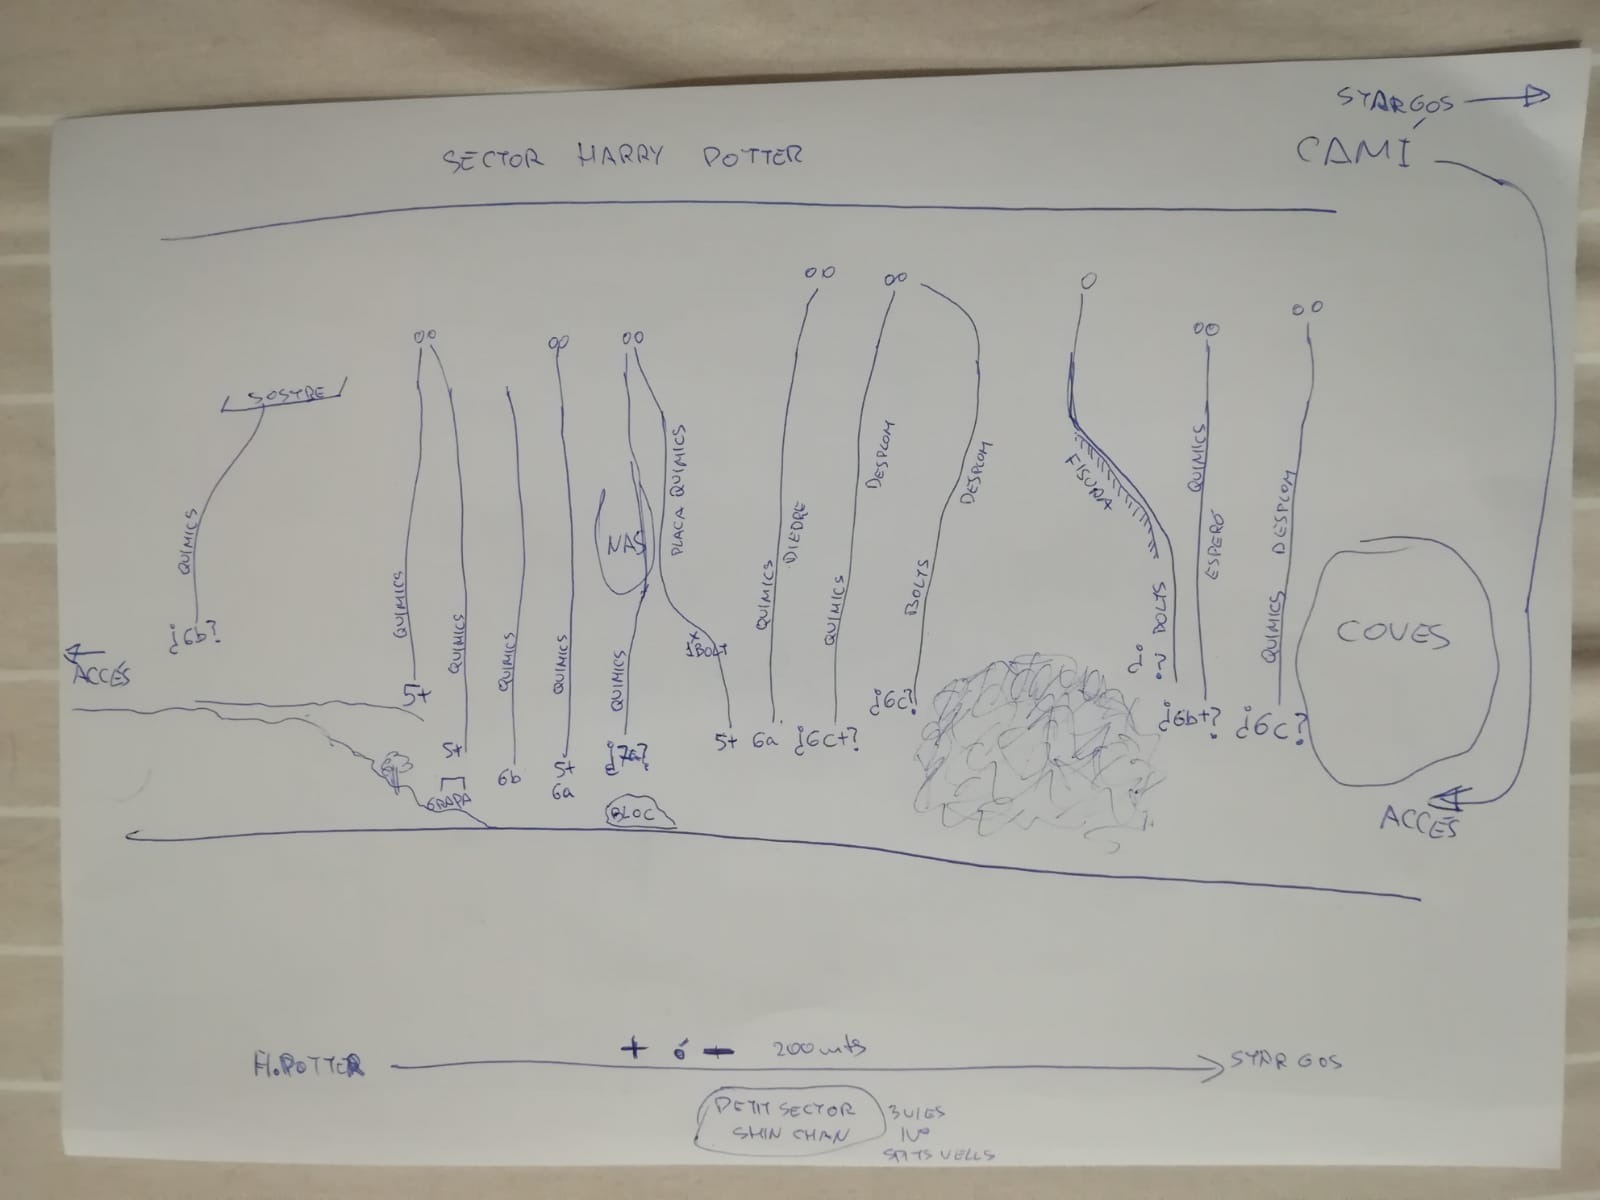 STARGOS
SECTOR HARRY POTTER
CAMÍ
SOSTRE
QUIMICS
¿6b?
ACCÉS
QUIMICS
5+
QUIMICS
5+
GRAPA
QUIMICS
6b
QUIMICS
5+
6a
NAS
QUIMICS
¿7a?
BLOC
PLACA QUIMICS
1 BOLT
5+
QUIMICS
DIEDRE
6a
QUIMICS
DESPLOM
¿6c+?
BOLTS
DESPLOM
¿6c?
FISURA
BOLTS
QUIMICS
ESPERÓ
¿6b+?
QUIMICS DESPLOM
¿6c?
COVES
ACCÉS
H.POTTER
+ ó - 200 mts
STARGOS
PETIT SECTOR
SHIN CHAN
3 VIES
IVº
SPITS VELLS